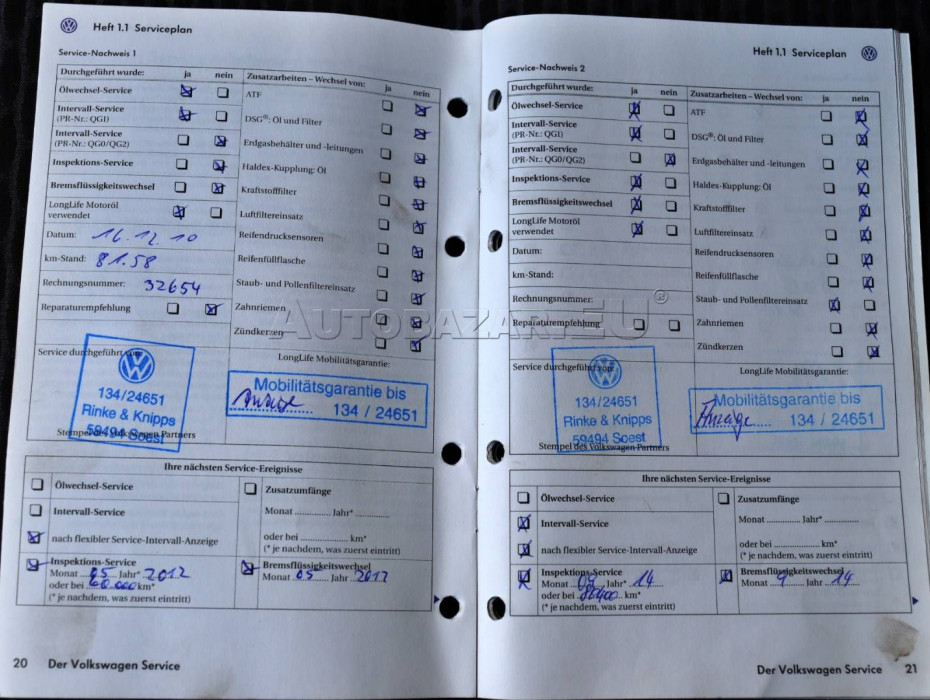 Heft 1.1 Serviceplan
Service-Nachweis 1
Durchgeführt wurde: ja nein
Ölwechsel-Service
Intervall-Service
(PR-Nr.: QGI)
Intervall-Service
(PR-Nr.: QG0/QG2)
Inspektions-Service
Bremsflüssigkeitswechsel
LongLife Motoröl
verwendet
Datum: 16.12.10
km-Stand: 81.58
Rechnungsnummer: 32654
Reparaturempfehlung
Zusatzarbeiten – Wechsel von: ja nein
ATF
DSG®: Öl und Filter
Erdgasbehälter und -leitungen
Haldex-Kupplung: Öl
Kraftstofffilter
Luftfiltereinsatz
Reifendrucksensoren
Reifenfüllflasche
Staub- und Pollenfiltereinsatz
Zahnriemen
Zündkerzen
Service durchgeführt von:
134/24651
Rinke & Knipps
59494 Soest
Stempel des Volkswagen Partners
LongLife Mobilitätsgarantie:
Mobilitätsgarantie bis
Anzeige 134 / 24651
Ihre nächsten Service-Ereignisse
Ölwechsel-Service
Intervall-Service
nach flexibler Service-Intervall-Anzeige
Inspektions-Service
Monat 05 Jahr* 2012
oder bei 60.000 km*
(* je nachdem, was zuerst eintritt)
Zusatzumfänge
Monat Jahr*
oder bei km*
(* je nachdem, was zuerst eintritt)
Bremsflüssigkeitswechsel
Monat 05 Jahr 2012
20 Der Volkswagen Service
Heft 1.1 Serviceplan
Service-Nachweis 2
Durchgeführt wurde: ja nein
Ölwechsel-Service
Intervall-Service
(PR-Nr.: QGI)
Intervall-Service
(PR-Nr.: QG0/QG2)
Inspektions-Service
Bremsflüssigkeitswechsel
LongLife Motoröl
verwendet
Datum:
km-Stand:
Rechnungsnummer:
Reparaturempfehlung
Zusatzarbeiten – Wechsel von: ja nein
ATF
DSG®: Öl und Filter
Erdgasbehälter und -leitungen
Haldex-Kupplung: Öl
Kraftstofffilter
Luftfiltereinsatz
Reifendrucksensoren
Reifenfüllflasche
Staub- und Pollenfiltereinsatz
Zahnriemen
Zündkerzen
Service durchgeführt von:
134/24651
Rinke & Knipps
59494 Soest
Stempel des Volkswagen Partners
LongLife Mobilitätsgarantie:
Mobilitätsgarantie bis
Anzeige 134 / 24651
Ihre nächsten Service-Ereignisse
Ölwechsel-Service
Intervall-Service
nach flexibler Service-Intervall-Anzeige
Inspektions-Service
Monat 09 Jahr* 14
oder bei km*
(* je nachdem, was zuerst eintritt)
Zusatzumfänge
Monat Jahr*
oder bei km*
(* je nachdem, was zuerst eintritt)
Bremsflüssigkeitswechsel
Monat 9 Jahr 14
Der Volkswagen Service 21
AUTOBAZAR.EU®